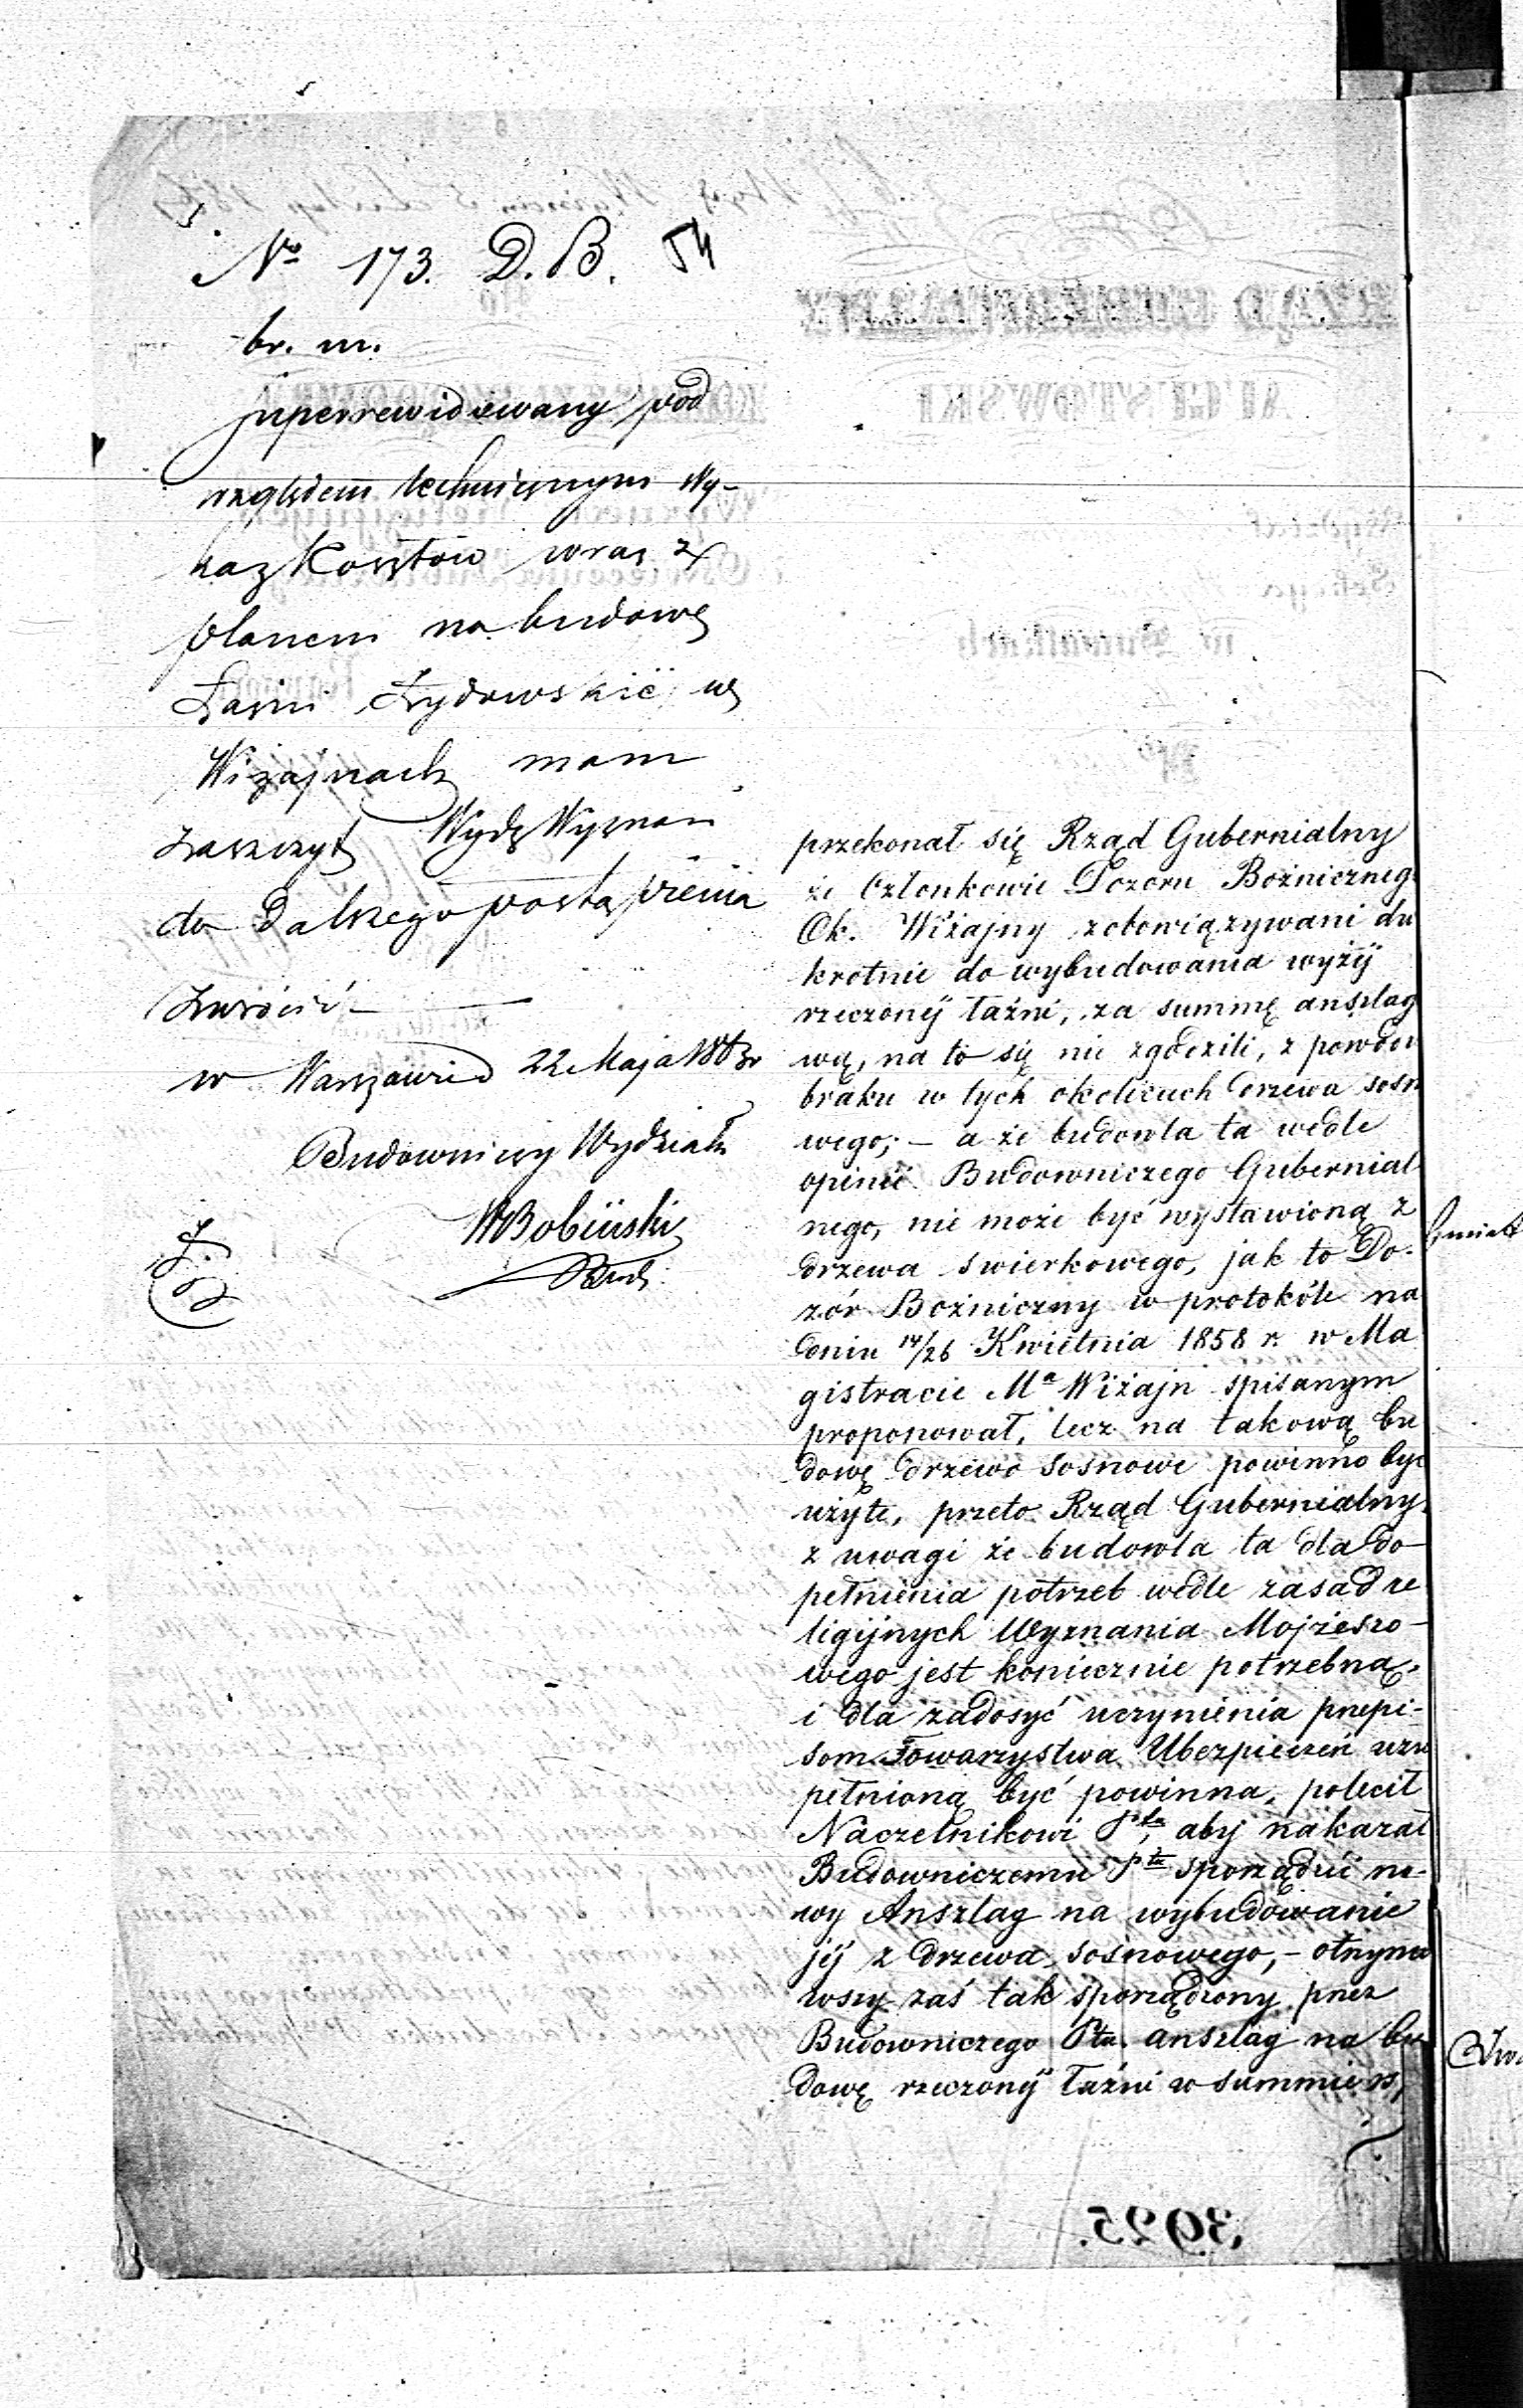 No 173. D. B. 54
br. m.
superrewidowany pod
względem technicznym wy-
kaz Kosztów wraz z
planem na budowę
Łaźni Żydowskiéj w
Wiżajnach mam
zaszczyt Wydz Wyznań
do Dalszego postąpienia
zwrócić —
w Warszawie d 22 Maja
Budowniczy Wydziału
WBobiński
przekonał się Rząd Gubernialny
że Członkowie Dozoru Bożniczneg
Ok. Wiżajny zobowiązywani du
krotnie do wybudowania wyżéj
rzeczonéj łaźni, za summę anszlag
wą, na to się nie zgodzili, z powodu
braku w tych okolicach drzewa sosn
wego; — a że budowla ta wedle
opinii Budowniczego Gubernial
nego, nie może być wystawioną z
drzewa swierkowego, jak to Do-
zór Bożniczny w protokóle na
dniu 14/26 Kwietnia 1858 r. w Ma
gistracie Ma Wiżajn spisanym
proponował, lecz na takową bu
dowę drzewo sosnowe powinno być
użyte, przeto Rząd Gubernialny
z uwagi że budowla ta dla do-
pełnienia potrzeb wedle zasad re
ligijnych Wyznania Mojżeszo-
wego jest koniecznie potrzebną,
i dla zadosyć uczynienia przepi-
som Towarzystwa Ubezpieczeń uzu
pełnioną być powinna, polecił
Naczelnikowi Ptu, aby nakazał
Budowniczemu Ptu sporządzić no-
wy Anszlag na wybudowanie
jéj z drzewa sosnowego, – otrzyma
wszy zaś tak sporządzony przez
Budowniczego Ptu. anszlag na bu
dowę rzeczonéj łaźni w summie rs,
3925.